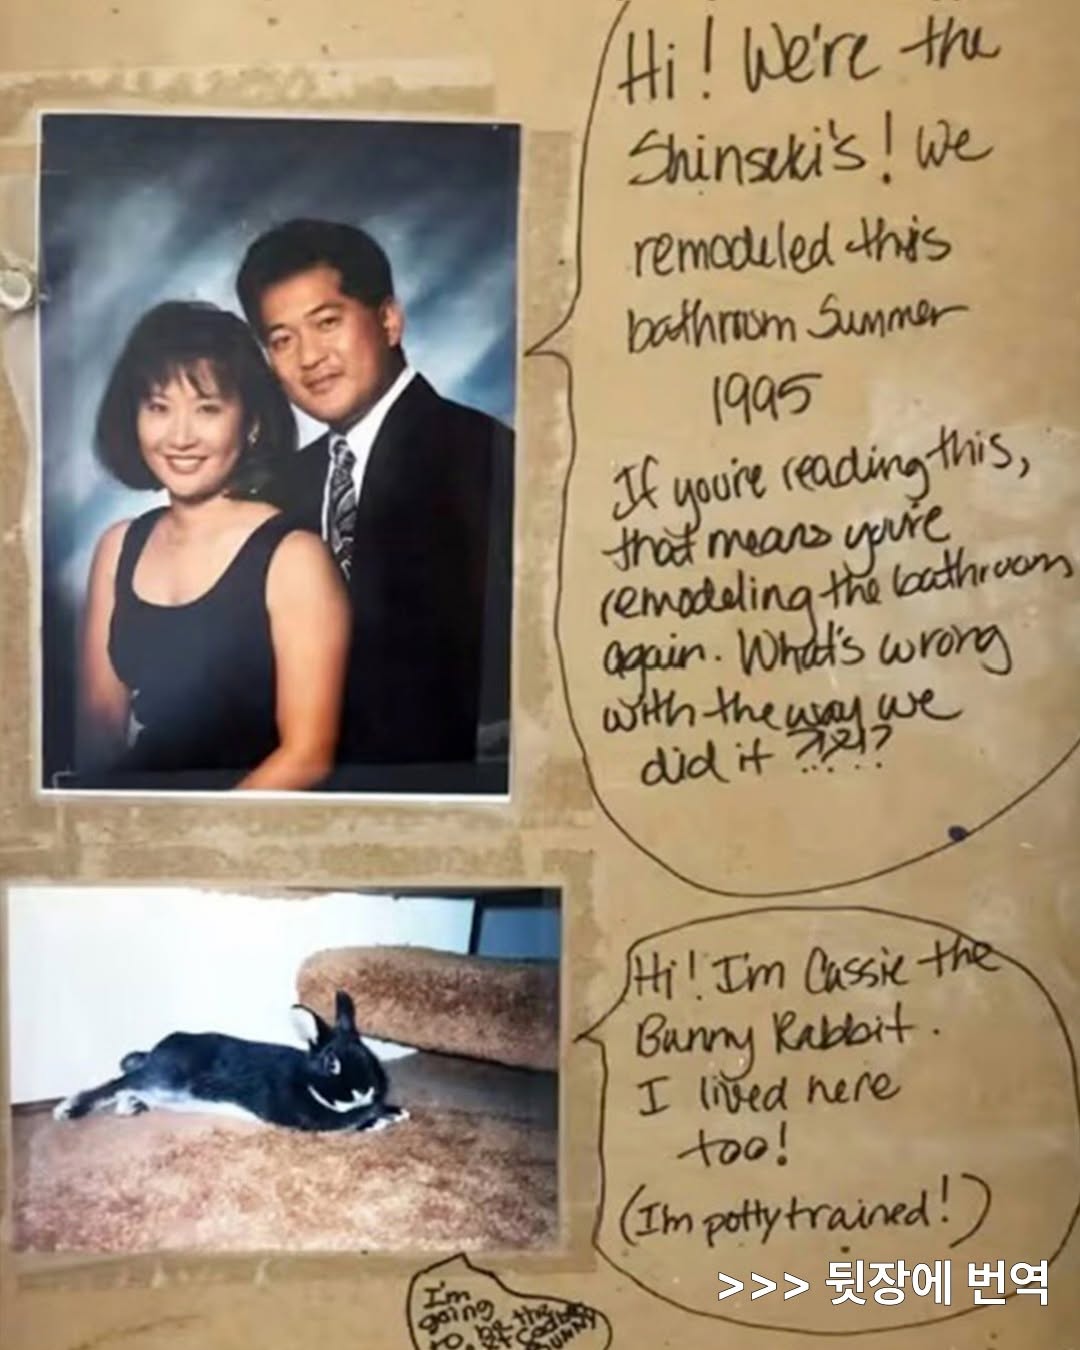 Hi! We're the
Shinseki's! We
remodeled this
bathroom Summer
1995
If you're reading this,
that means you're
remodeling the bathroom
again. What's wrong
with the way we
did it ?!?!?
Hi! I'm Cassie the
Bunny Rabbit.
I lived here
too!
(I'm potty trained!)
>>> 뒷장에 번역
I'm
going
to be the